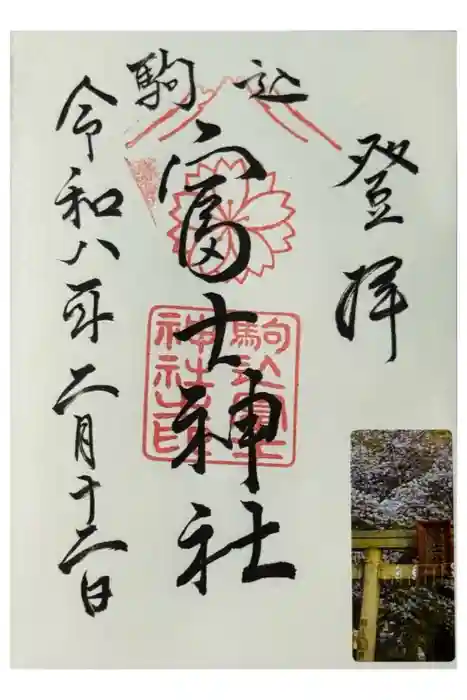 登拝
駒込
富士神社
駒込富士
神社之印
令和八年二月十二日